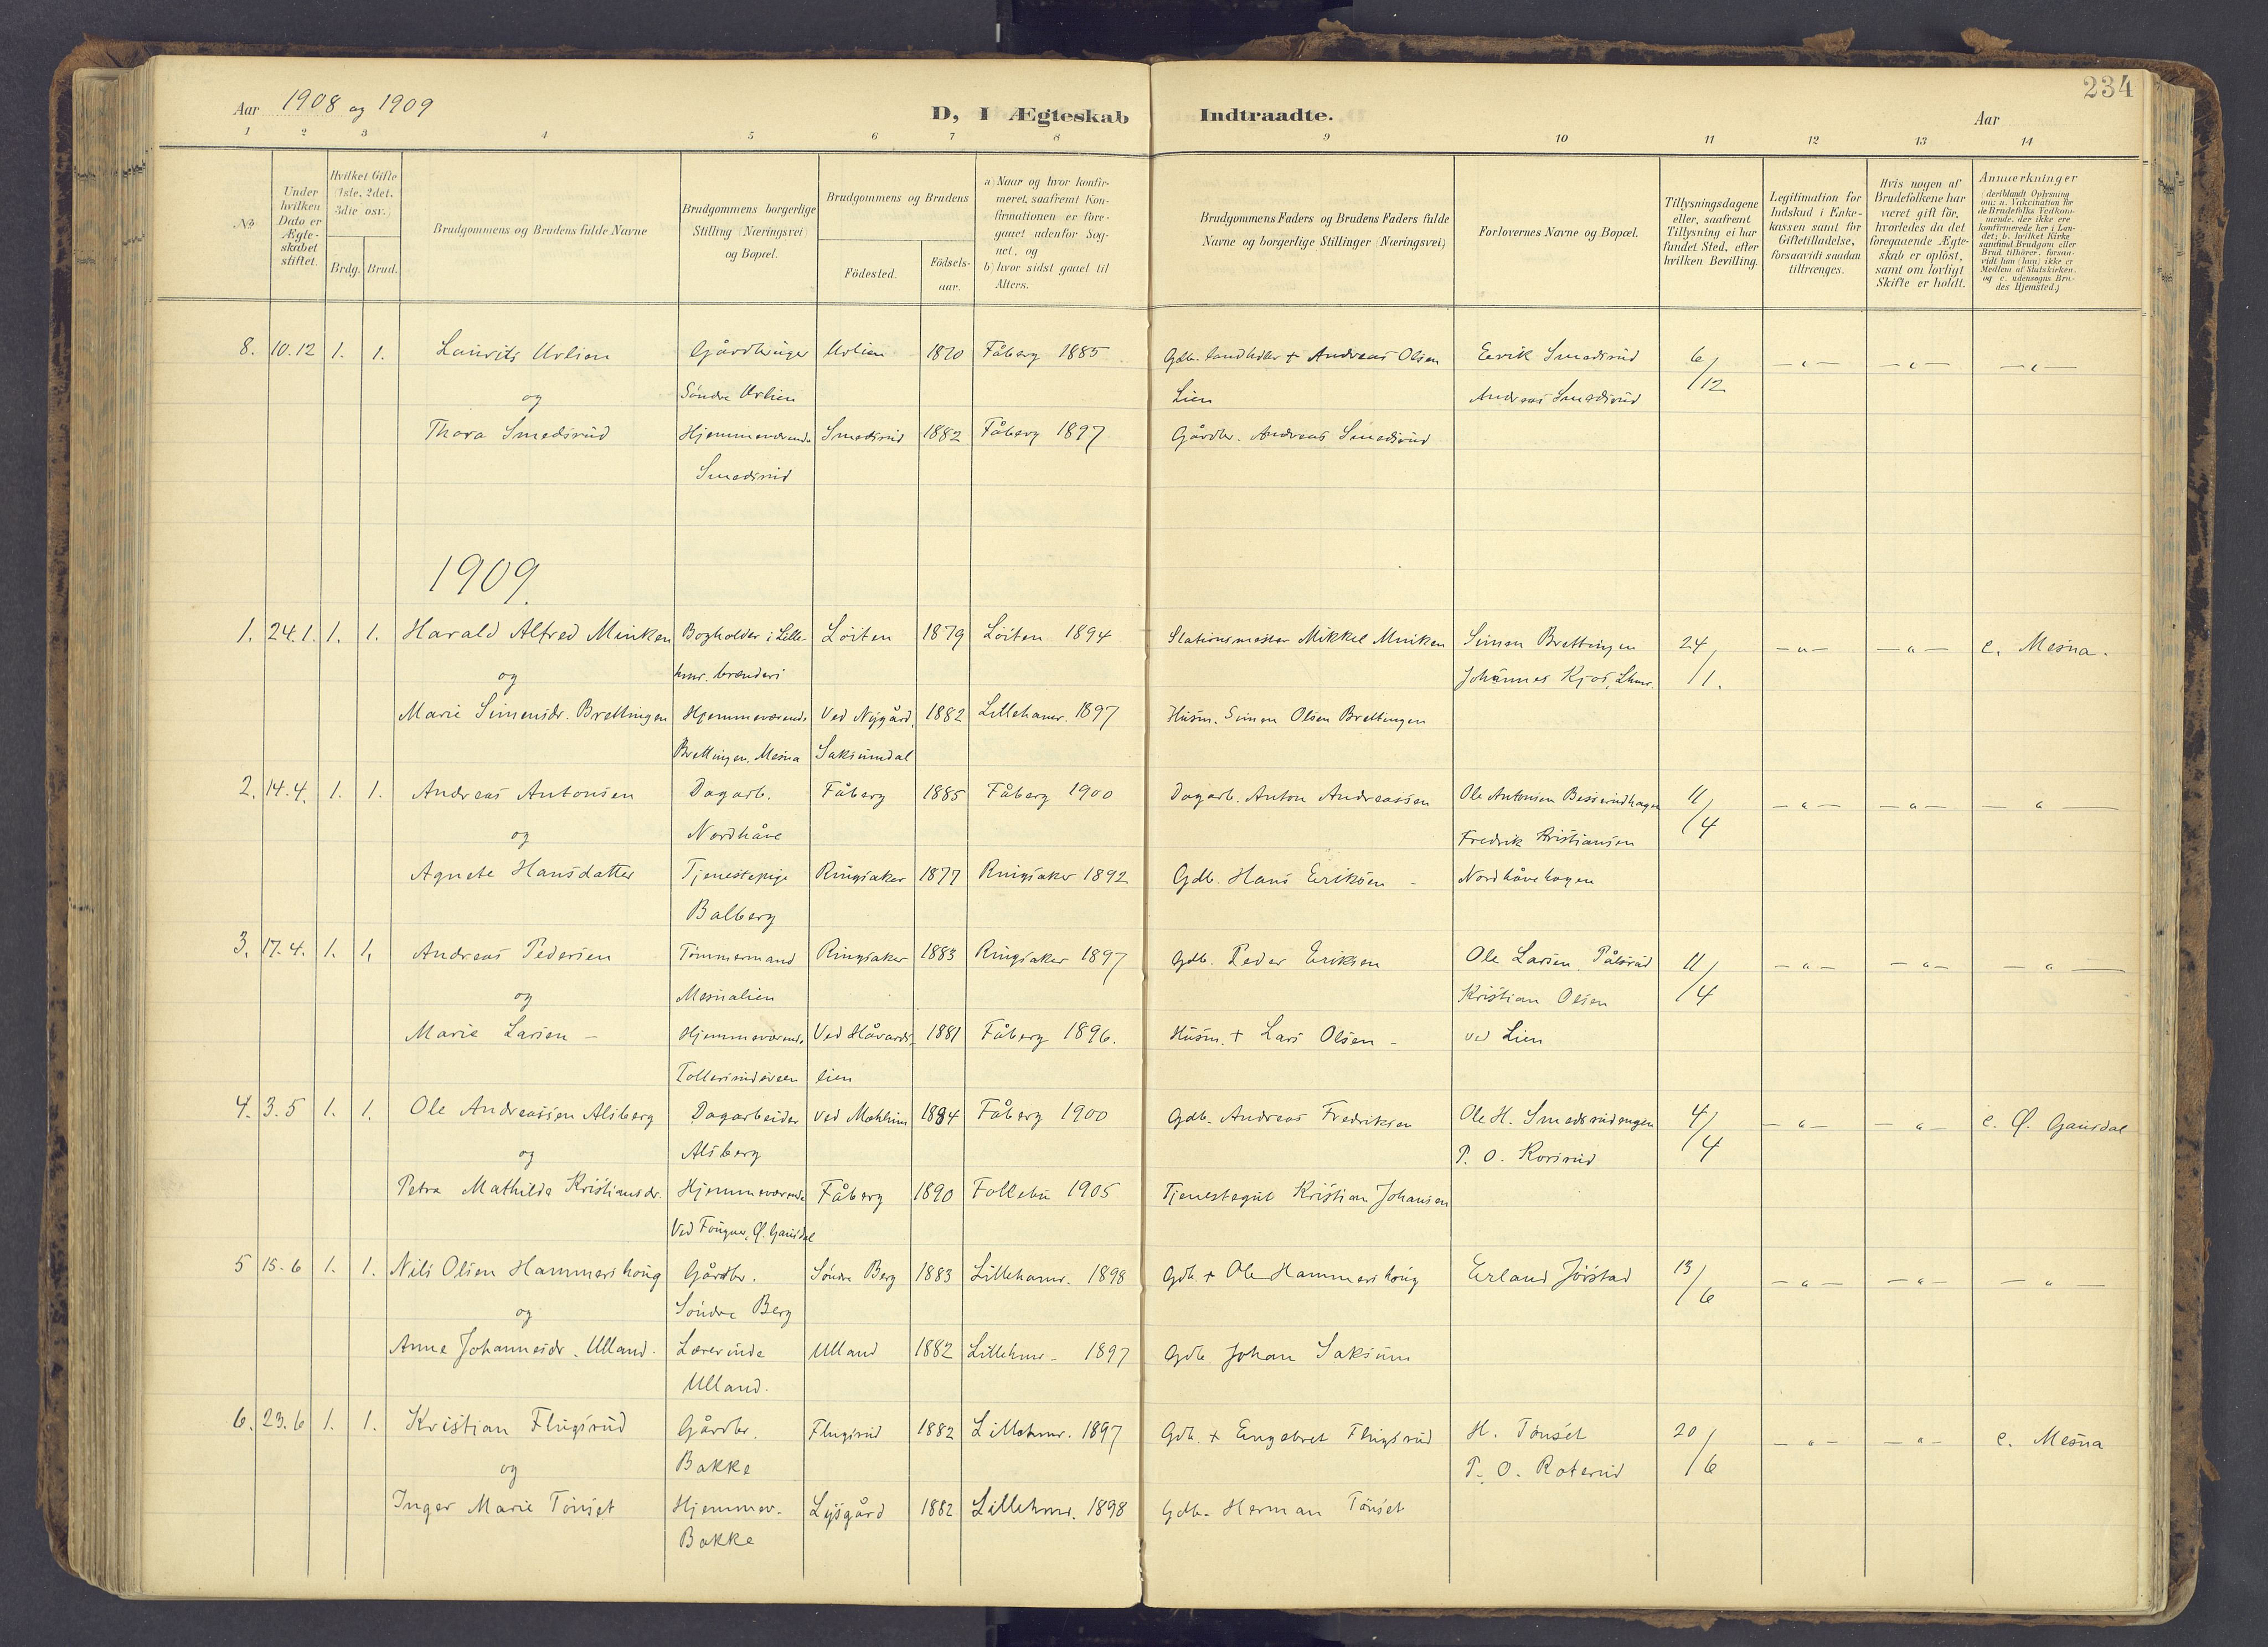 234
Aar 1908 og 1909
D, I Ægteskab Indtraadte.
Aar
1 2 3 4 5 6 7 8 9 10 11 12 13 14
No.
Under hvilken Dato er Ægteskabet stiftet.
Hvilket Gifte (1ste, 2det, 3die osv.)
Brdg. Brud.
Brudgommens og Brudens fulde Navne
Brudgommens borgerlige Stilling (Næringsvei) og Bopæl.
Brudgommens og Brudens
Födested.
Födsels-aar.
a) Naar og hvor konfir-
meret, saafremt Kon-
firmationen er fore-
gaaet udenfor Sog-
net, og
b) hvor sidst gaaet til
Alters.
Brudgommens Faders og Brudens Faders fulde
Navne og borgerlige Stillinger (Næringsvei)
Forlovernes Navne og Bopæl.
Tillysningsdagene
eller, saafremt
Tillysning ei har
fundet Sted, efter
hvilken Bevilling.
Legitimation for
Indskud i Enke-
kassen samt for
Giftetilladelse,
forsaavidt saadan
tiltrænges.
Hvis nogen af
Brudefolkene har
været gift för,
hvorledes da det
foregaaende Ægte-
skab er oplöst,
samt om lovligt
Skifte er holdt.
Anmærkninger
(deriblandt Oplysning
om: a. Vaksination for
de Brudefolks Vedkom-
mende, der ikke ere
konfirmerede her i Lan-
det; b. hvilket Kirke-
samfund Brudgom eller
Brud tilhörer, forsaa-
vidt han (hun) ikke er
Medlem af Statskirken,
og c. udensogns Bru-
des Hjemsted.)
8. 10.12 1. 1. Laurits Urlien Gårdbruger Urlien 1870 Fåberg 1885 Gdb. Landhdler + Andreas Olsen Eevik Smedsrud 6/12 -"- -"- -"-
og Söndre Urlien Lien Andreas Smedsrud
Thora Smedsrud Hjemmeværende Smedsrud 1882 Fåberg 1897 Gårdbr. Andreas Smedsrud
Smedsrud
1909.
1. 24.1. 1. 1. Harald Alfred Minken Bogholder i Lille- Löiten 1879 Löiten 1894 Stationsmester Mikkel Minken Simen Brettingen 24/1. -"- -"- c. Mesna.
og hmr. brænderi Johannes Kjos, Lhmr.
Marie Simensdr. Brettingen Hjemmeværende Ved Nygård, 1882 Lillehamr. 1897 Husm. Simen Olsen Brettingen
Brettingen, Mesna Saksumdal
2. 14.4. 1. 1. Andreas Antonsen Dagarb. Fåberg 1885 Fåberg 1900 Dagarb. Anton Andreassen Ole Antonsen Besserudhagen 11/4 -"- -"- -"-
og Nordhåve Fredrik Kristiansen
Agnete Hansdatter Tjenestepige Ringsaker 1877 Ringsaker 1892 Gdb. Hans Eriksen - Nordhåvehagen
Balberg
3. 17.4. 1. 1. Andreas Pedersen Tömmermand Ringsaker 1883 Ringsaker 1897 Gdb. Peder Eriksen Ole Larsen, Pålsrud 11/4 -"- -"- -"-
og Mesnalien Kristian Olsen
Marie Larsen - Hjemmeværende Ved Håvards- 1881 Fåberg 1896. Husm. + Lars Olsen - ved Lien
Tollersrudsveen lien
4. 3.5 1. 1. Ole Andreassen Alsberg Dagarbeider Ved Mohlum 1884 Fåberg 1900 Gdb. Andreas Fredriksen Ole H. Smedsrudengen 4/4 -"- -"- c. Ö. Gausdal
og Alsberg P. O. Korsrud
Petra Mathilde Kristiansdr. Hjemmeværende Fåberg 1890 Follebu 1905 Tjenestegut Kristian Johansen
Ved Fougner, Ö. Gausdal
5 15.6 1. 1. Nils Olsen Hammershoug Gårdbr. Söndre Berg 1883 Lillehamr. 1898 Gdb. + Ole Hammershoug Erland Jörstad 13/6 -"- -"- -"-
og Söndre Berg
Anne Johannesdr. Ulland. Lærerinde Ulland 1882 Lillehmr. 1897 Gdb. Johan Saksum
Ulland.
6. 23.6 1. 1. Kristian Flugsrud Gårdbr. Flugsrud 1882 Lillehmr. 1897 Gdb. + Engebret Flugsrud H. Tönset 20/6 -"- -"- c. Mesna
og Bakke P. O. Roterud
Inger Marie Tönset Hjemmev. Lysgård 1882 Lillehmr. 1898 Gdb. Herman Tönset
Bakke